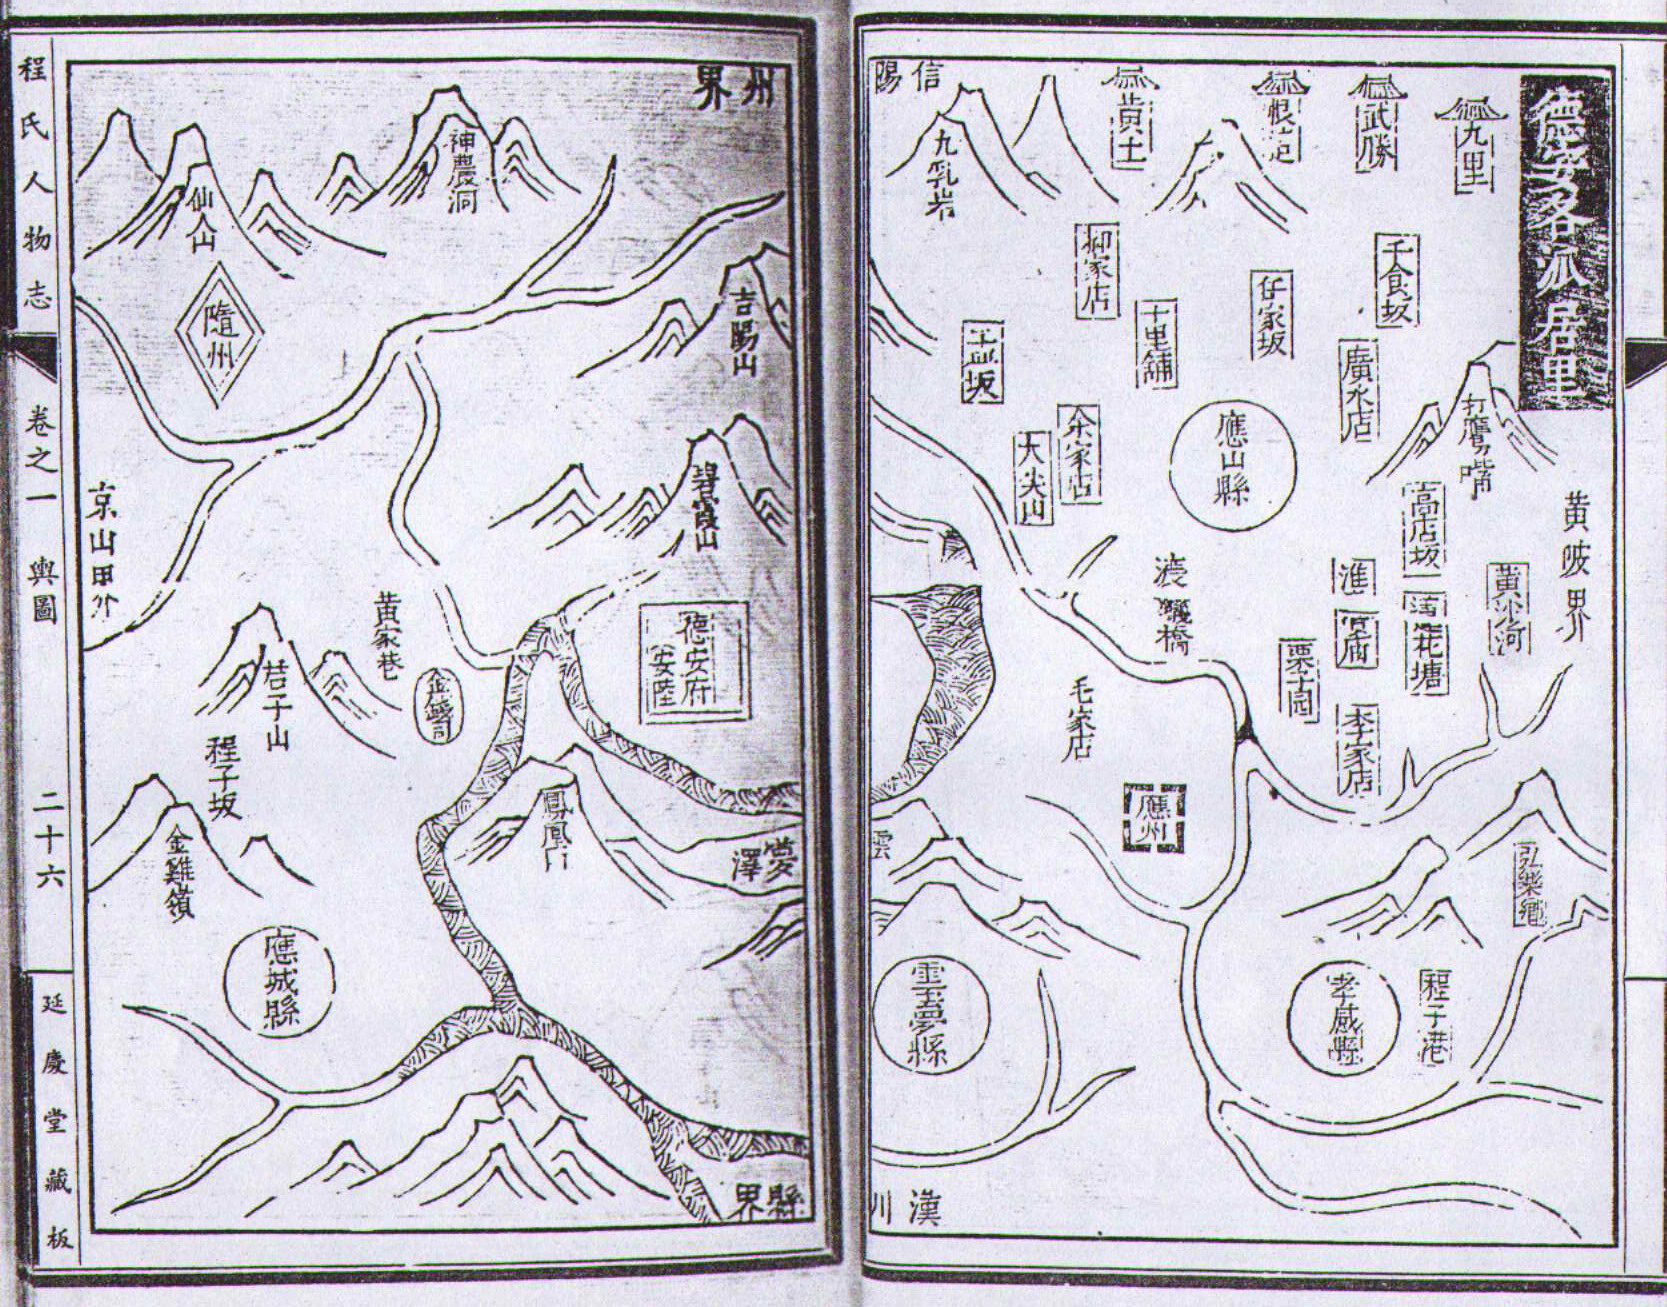 德安各派居里
九里
武勝
黃土
信陽
州界
九乳岩
柳家店
十里舖
仔家坂
千食坂
廣水店
打鷹嘴
余家店
大尖山
應山縣
高店坂
黃沙河
黃陂界
淮
花塘
栗園
李家店
橋
毛家店
應州
孝感縣
程子港
雲夢縣
雲
夢澤
漢川
縣界
神農洞
仙人山
隨州
吉陽山
碧霞山
德安府
安陸
京山界
黃家巷
吉子山
程子坂
金雞嶺
鳳凰山
應城縣
程氏人物志
卷之一
輿圖
二十六
延慶堂藏板